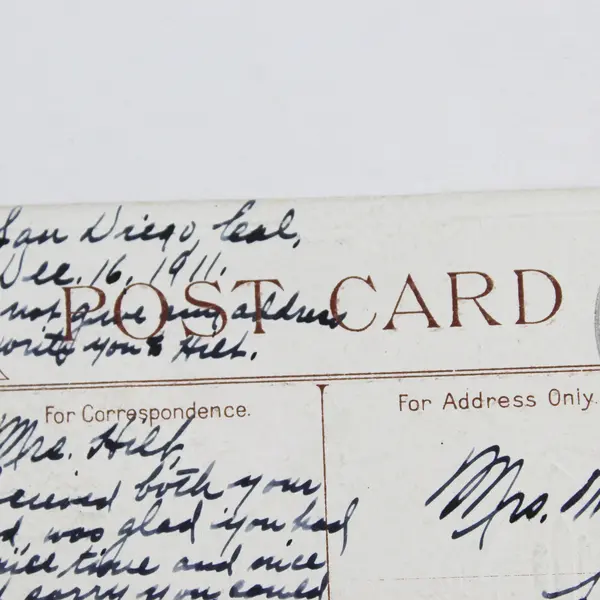 San Diego, Cal.
Dec. 16, 1911.
not give my address
write you & Hilt.
POST CARD
For Correspondence.
For Address Only.
Mrs. Hilt,
received both your
was glad you had
nice time and nice
sorry you could
Mrs.